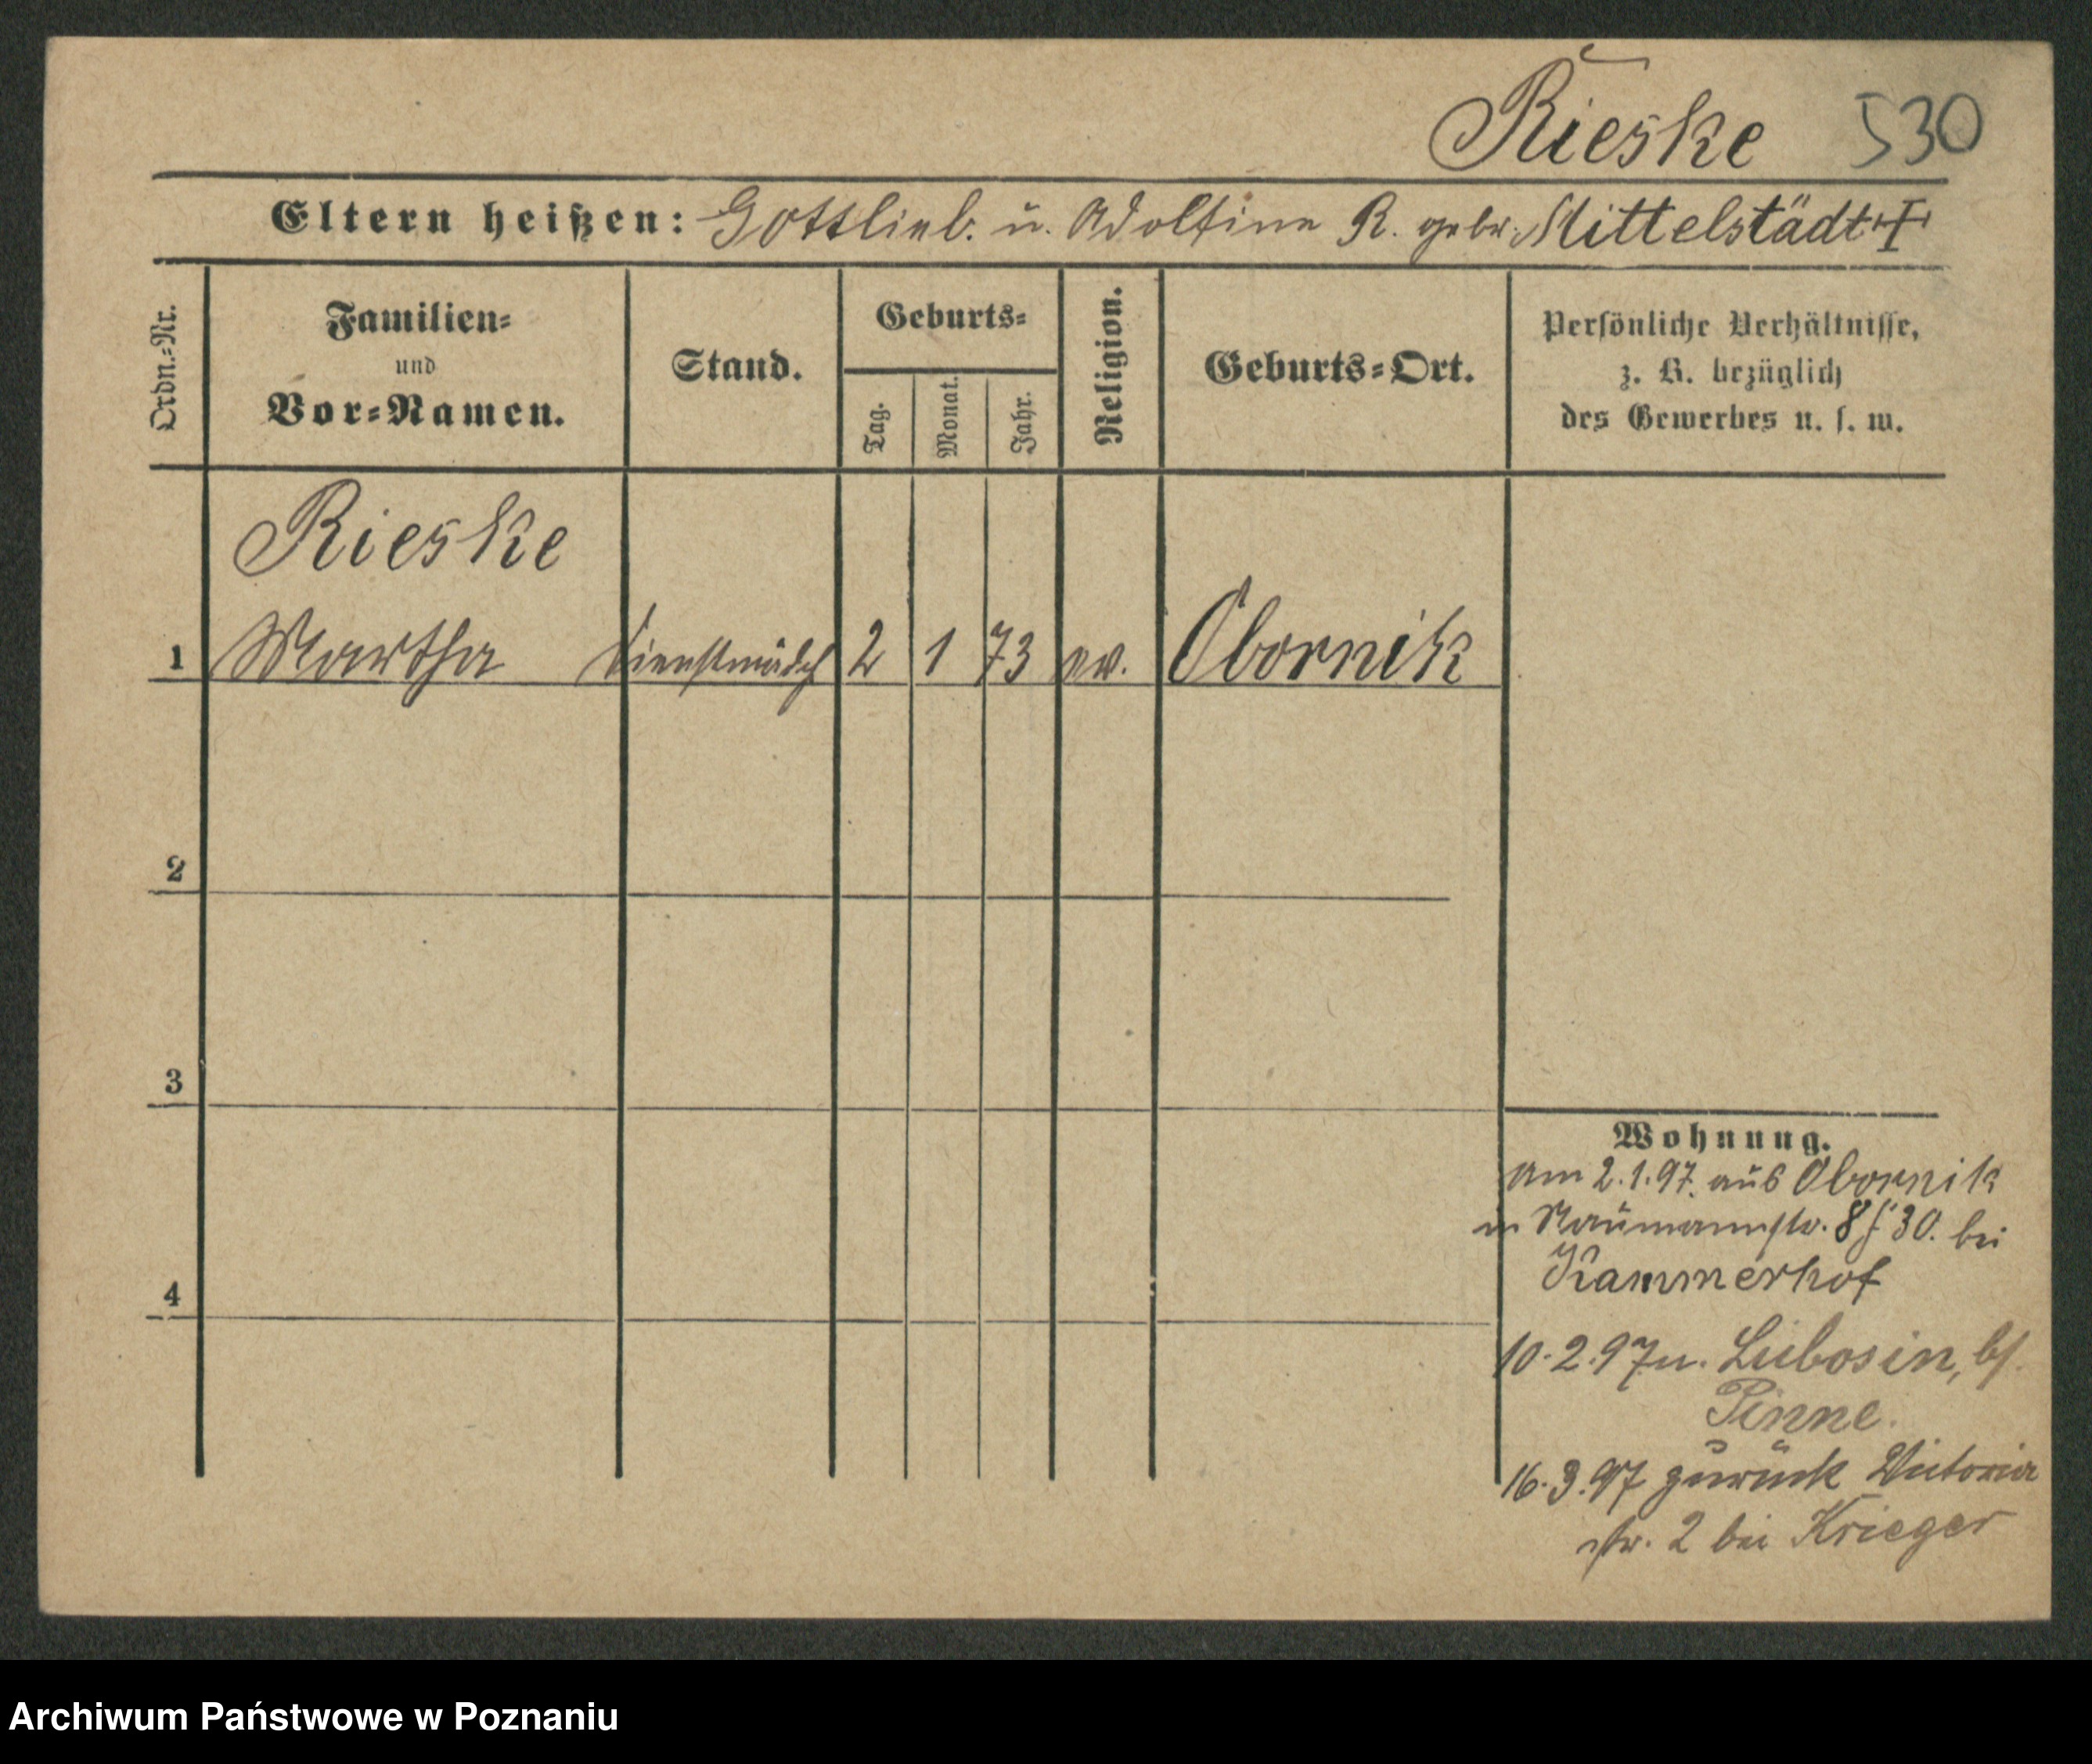 Rieske 530
Eltern heißen: Gottlieb. u. Adolfine R. gebr. Mittelstädt
Ordn.-Nr.
Familien-
und
Vor-Namen.
Stand.
Geburts-
Tag.
Monat.
Jahr.
Religion.
Geburts-Ort.
Persönliche Verhältnisse,
z. B. bezüglich
des Gewerbes u. s. w.
Rieske
1 Martha Dienstmädch 2 1 73 ev. Obornik
2
3
4
Wohnung.
am 2.1.97. aus Obornik
in Naumannstr. 8 30. bei
Kammerhof
10.2.97 n. Lubosin, b/.
Pinne.
16.3.97 zurück Victoria
str. 2 bei Krieger
Archiwum Państwowe w Poznaniu